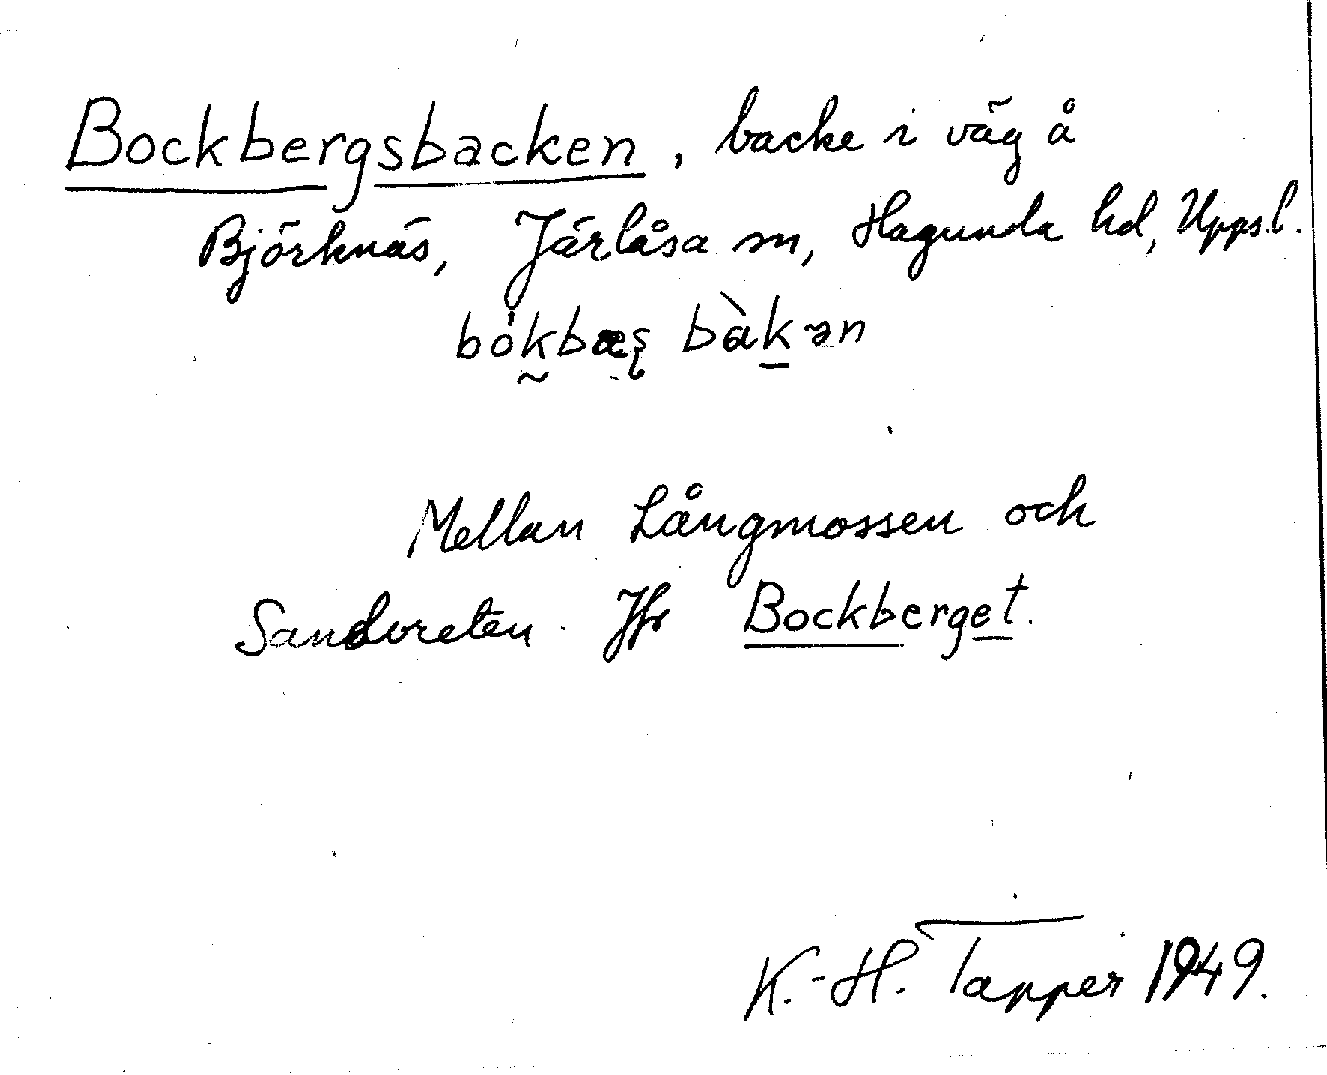 Bockbergsbacken, backe i väg å
Björknäs, Järlåsa sn, Hagunda hd, Uppsl.
bókbæș bàkən
Mellan Långmossen och
Sandvreten. Jfr Bockberget.
K.-H. Tapper 1949.